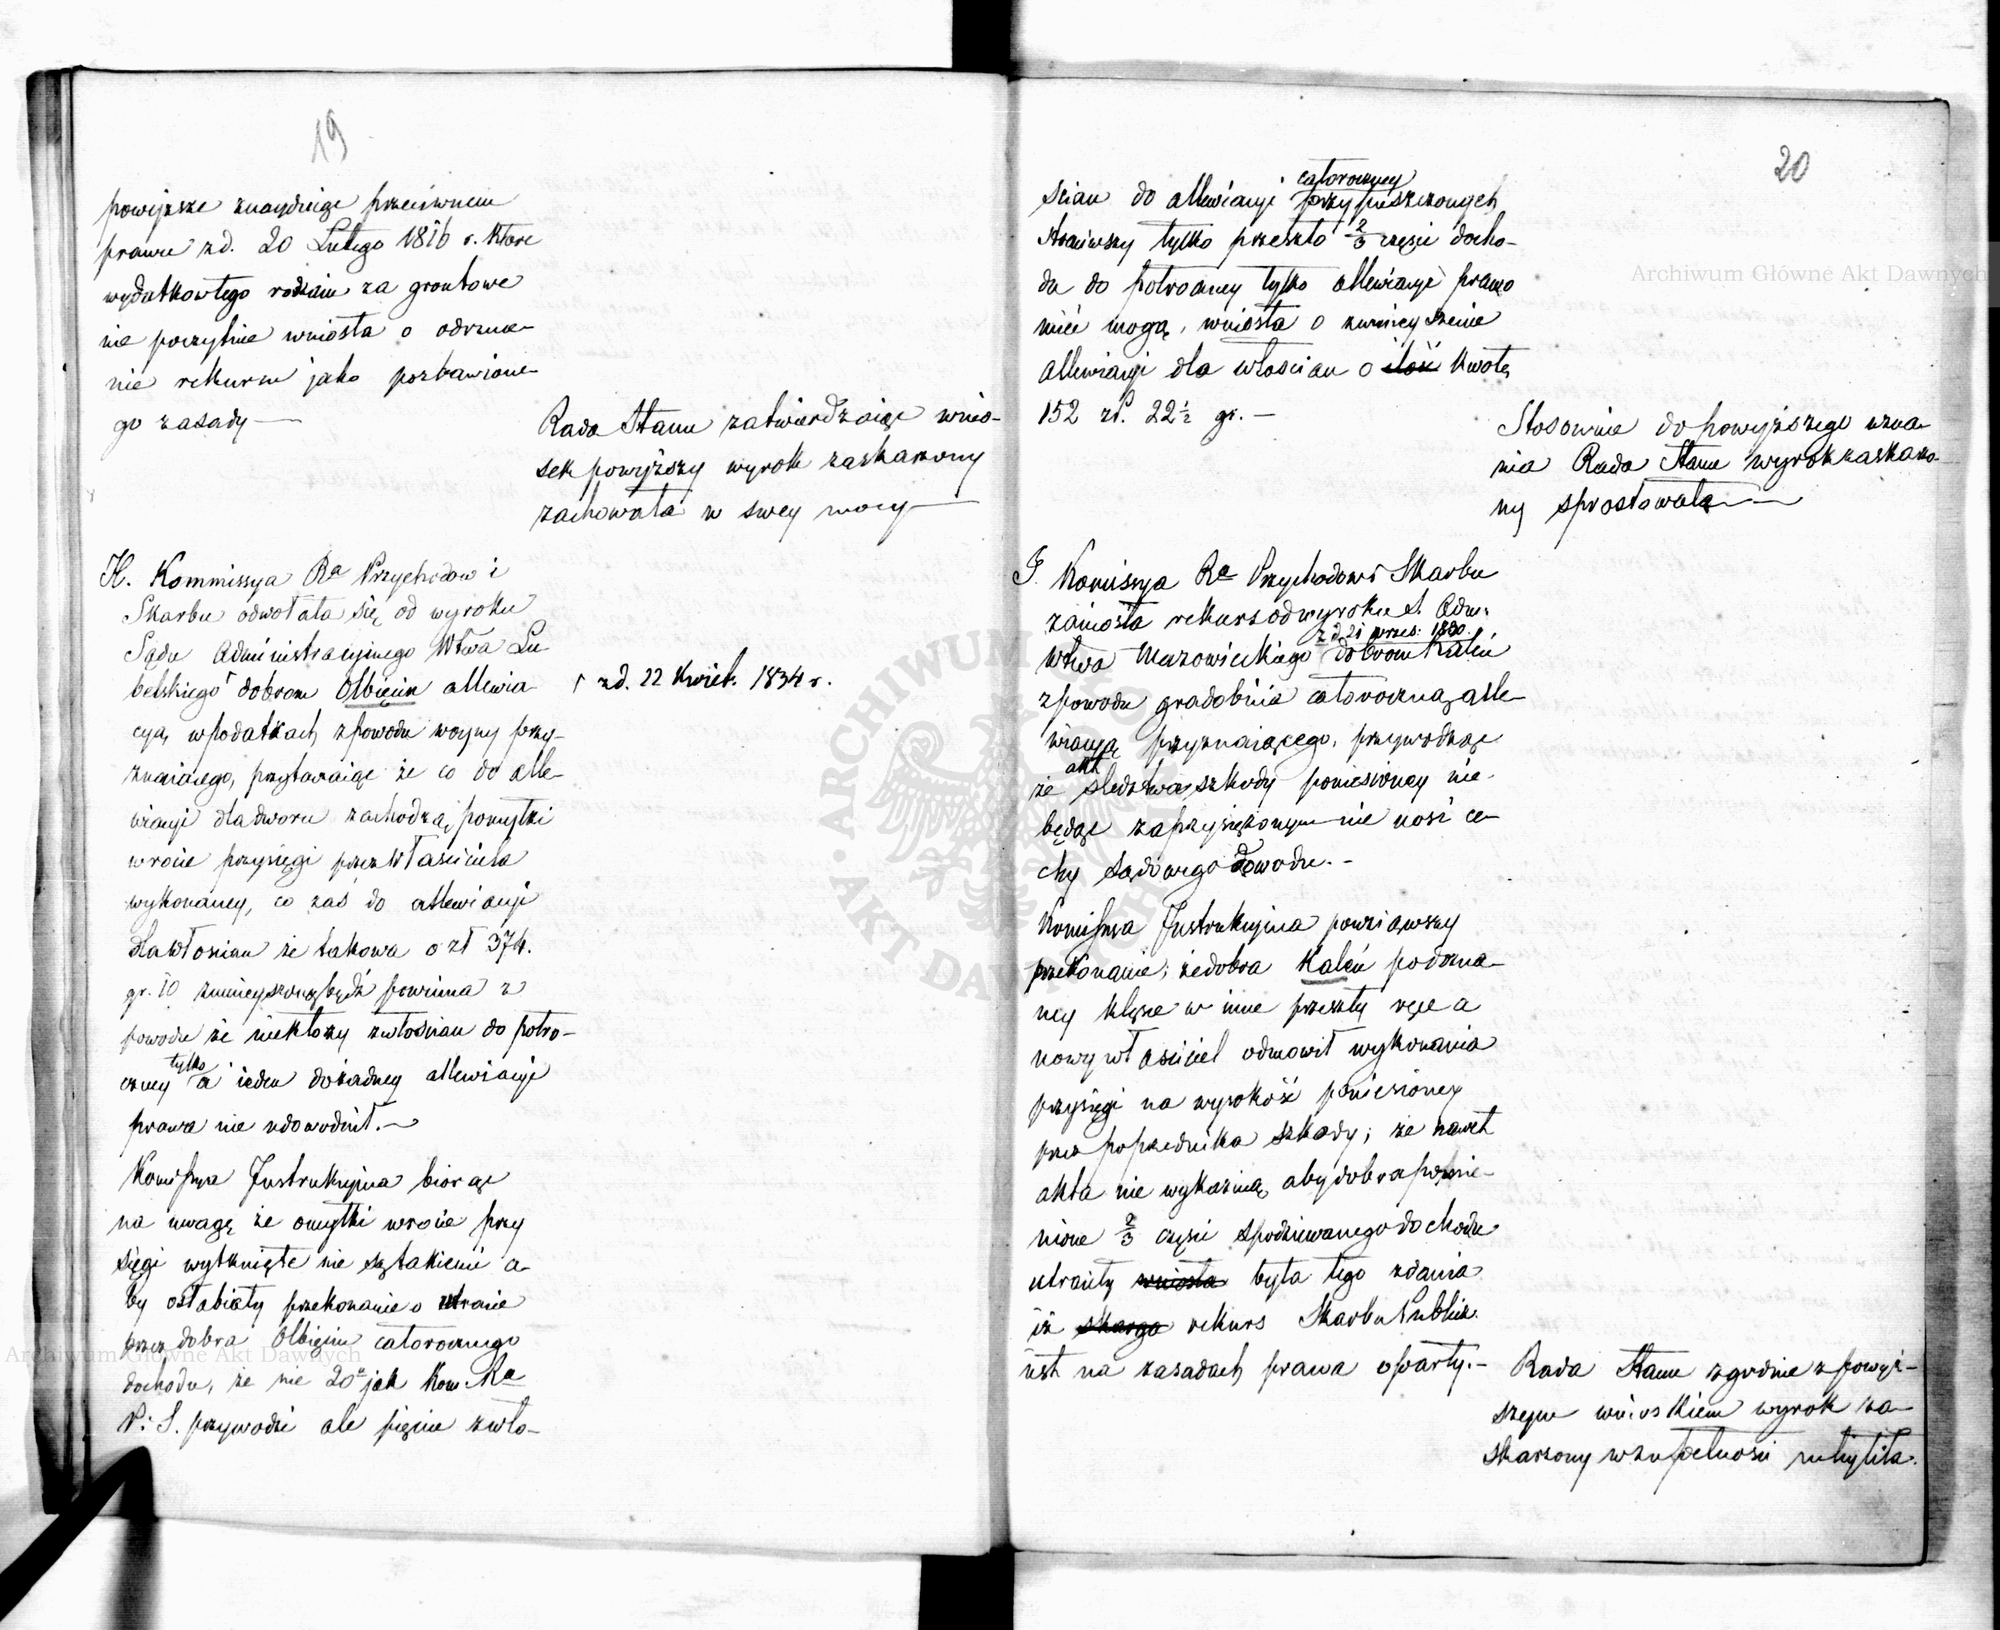 19
powyższe znayduiąc przeciwnem
prawu z d. 20 Lutego 1816 r. które
wydatków tego rodzaiu za gruntowe
nie poczytuie wniosła o odrzuce-
nie rekursu jako pozbawione-
go zasady —
Rada Stanu zatwierdzaiąc wnio-
sek powyższy wyrok zaskarżony
zachowała w swey mocy —
H. Kommissya Ra Przychodów i
Skarbu odwołała się od wyroku
Sądu Administracyjnego Wtwa Lu
belskiego ⌈ dobrom Olbięcin allewia
⌈ z d. 22 Kwiet. 1834 r.
cyą w podatkach z powodu woyny przy-
znaiącego, przytaczaiąc że co do alle-
wiacyi dla dworu zachodzą pomyłki
w rocie przysięgi przez Właściciela
wykonaney, co zaś do allewiacyi
dla włościan że takowa o zł 374.
gr. 10 zmnieyszoną bydź powinna z
powodu że niektórzy z włościan do potro-
czney tylko a ieden do żadney allewiacyi
prawa nie udowodnił. —
Komissya Instrukcyjna biorąc
na uwagę że omyłki w rocie przy
sięgi wytknięte nie są takiemi a-
by osłabiały przekonanie o utracie
przez dobra Olbięcin całorocznego
dochodu, że nie 20u jak Kom. Ra
P. i S. przywodzi ale pięciu z wło-
20
ścian do allewiacyi całoroczney przypuszczonych
straciwszy tylko przeszło 2/3 części docho-
du do potroczney tylko allewiacyi prawo
mieć mogą, wniosła o zmnieyszenie
allewiacyi dla włościan o ilość kwotę
152 zł. 22 1/2 gr. —
Stosownie do powyższego uzna-
nia Rada Stanu wyrok zaskarżo-
ny sprostowała —
J. Komissya Ra Przychodów i Skarbu
zaniosła rekurs od wyroku S. Adm.
z d. 21 wrzes: 1830.
Wtwa Mazowieckiego dobrom Kaleń
z powodu gradobicia całoroczną alle-
wiacyą przyznaiącego, przywodząc
że akt śledztwa szkody poniesioney nie
będąc zaprzysiężonym nie nosi ce-
chy sądowego dowodu. —
Komissya Instrukcyjna powziąwszy
przekonanie, że dobra Kaleń po dozna-
ney klęsce w inne przeszły ręce a
nowy właściciel odmówił wykonania
przysięgi na wysokość poniesioney
przez poprzednika szkody; że nawet
akta nie wykazuią aby dobra pomie-
nione 2/3 części spodziewanego dochodu
utraciły wniosła była tego zdania
iż skarga rekurs Skarbu Publicz.
iest na zasadach prawa oparty. —
Rada Stanu zgodnie z powyż-
szym wnioskiem wyrok za-
skarżony w zupełności uchyliła.